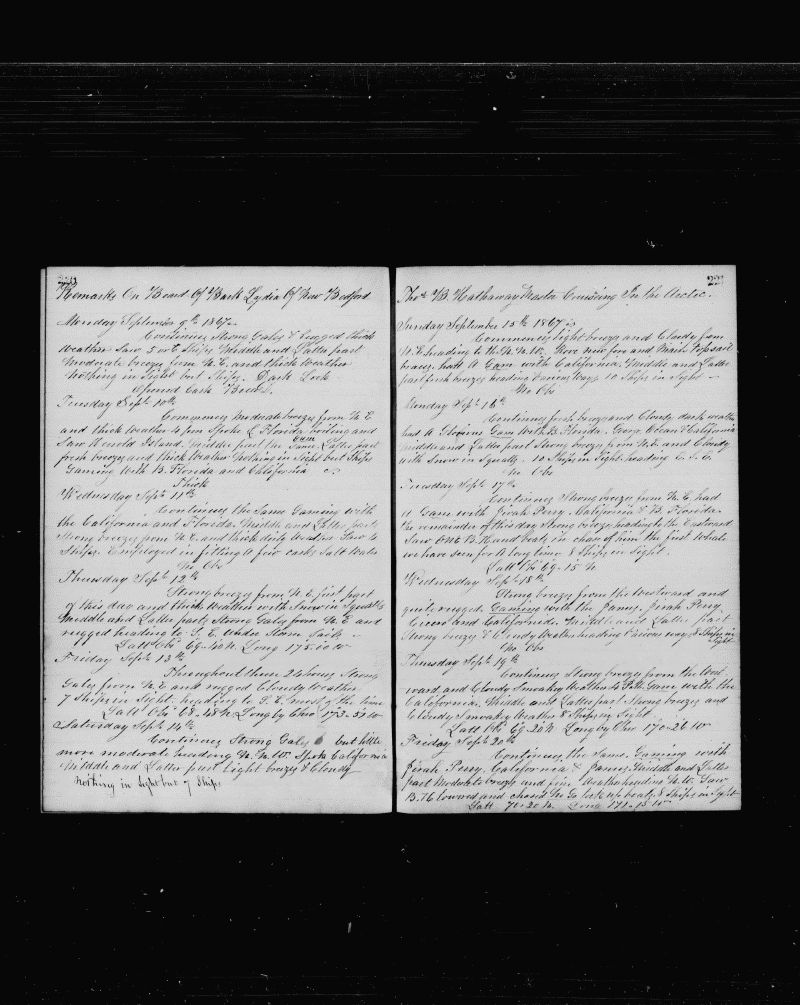 Remarks On Board Of Bark Lydia Of New Bedford
Monday September 9th 1867
Continues Strong Gales & Rugged thick
Weather Saw 5 or 6 Ships Middle and Latter part
Moderate breeze from N.E. and thick Weather
Nothing in Sight but Ships. Dark Look
Opened Cask Bread.
Tuesday Sept 10th
Commences Moderate breezes from N.E
and thick Weather 4 pm Spoke B. Florida boiling and
Saw Herold Island. Middle part the Same. Latter part
Gam
fresh breezes and thick Weather Nothing in Sight but Ships
Gaming With B. Florida and California
Thick
Wednesday Sept 11th
Continues the Same Gaming with
the California and Florida. Middle and Latter parts
Strong breezes from N.E. and thick dirty Weather. Saw 4
Ships. Employed in fitting A few casks Salt Water
No Obs
Thursday Sept 12th
Strong breezes from N.E. first part
of this day and thick Weather with Snow in Squalls
Middle and Latter parts Strong Gales from N.E and
rugged heading to S.E. Under Storm Sails
Latt Obs 69-40 N. Long 175-00 W
Friday Sept 13th
Throughout these 24 hours Strong
Gales from N.E and rugged Cloudy Weather
7 Ships in Sight. heading to S.E. most of the time
Latt Obs 68-48 N. Long by Chro 173-33 W
Saturday Sept 14th
Continues Strong Gales but little
more moderate heading N.N.W. Spoke California
Middle and Latter part Light breezes & Cloudy
Nothing in Sight but 7 Ships
Thos B. Hathaway Master Cruising In the Arctic.
Sunday September 15th 1867
Commences light breeze and Cloudy from
N.E. heading to the N.N.W. Rove new fore and Main Topsail
braces. had A Gam with California. Middle and Latter
part fresh breezes heading Various Ways 10 Ships in Sight
No Obs
Monday Sept 16th
Continues fresh breezes and Cloudy dark weather
had A Gam With B. Florida. George Ocean & California
middle and Latter part Strong breezes from N.E. and Cloudy
with Snow in Squalls. 10 Ships in Sight. heading E.S.E.
No Obs
Tuesday Sept 17th
Continues Strong breezes from N.E. had
A Gam with Jirah Perry. California & B. Florida.
the remainder of this day Strong breezes heading to the Eastward
Saw One B. Head boats in chase of him the first Whale
we have seen for A long time 8 Ships in Sight.
Latt Obs 69-15 N
Wednesday Sept 18th
Strong breezes from the Westward and
quite rugged. Gaming with the James. Jirah Perry.
Cicero and California. Middle and Latter part
Strong breezes & Cloudy Weather heading Various ways 8 Ships in
Sight
No Obs
Thursday Sept 19th
Continues Strong breezes from the West
ward and Cloudy Smoaky Weather 4 P.M. Gam with the
California. Middle and Latter part Strong breezes and
Cloudy Smoaky Weather 8 Ships in Sight
Latt Obs 69-20 N Long by Chro 170-26 W
Friday Sept 20th
Continues the Same. Gaming with
Jirah Perry. California & James. Middle and Latter
part Moderate breezes and fine Weather heading N.W. Saw
B.H. lowered and chased No Go took up boats. 8 Ships in Sight
Latt 70-20 N. Long 171-15 W